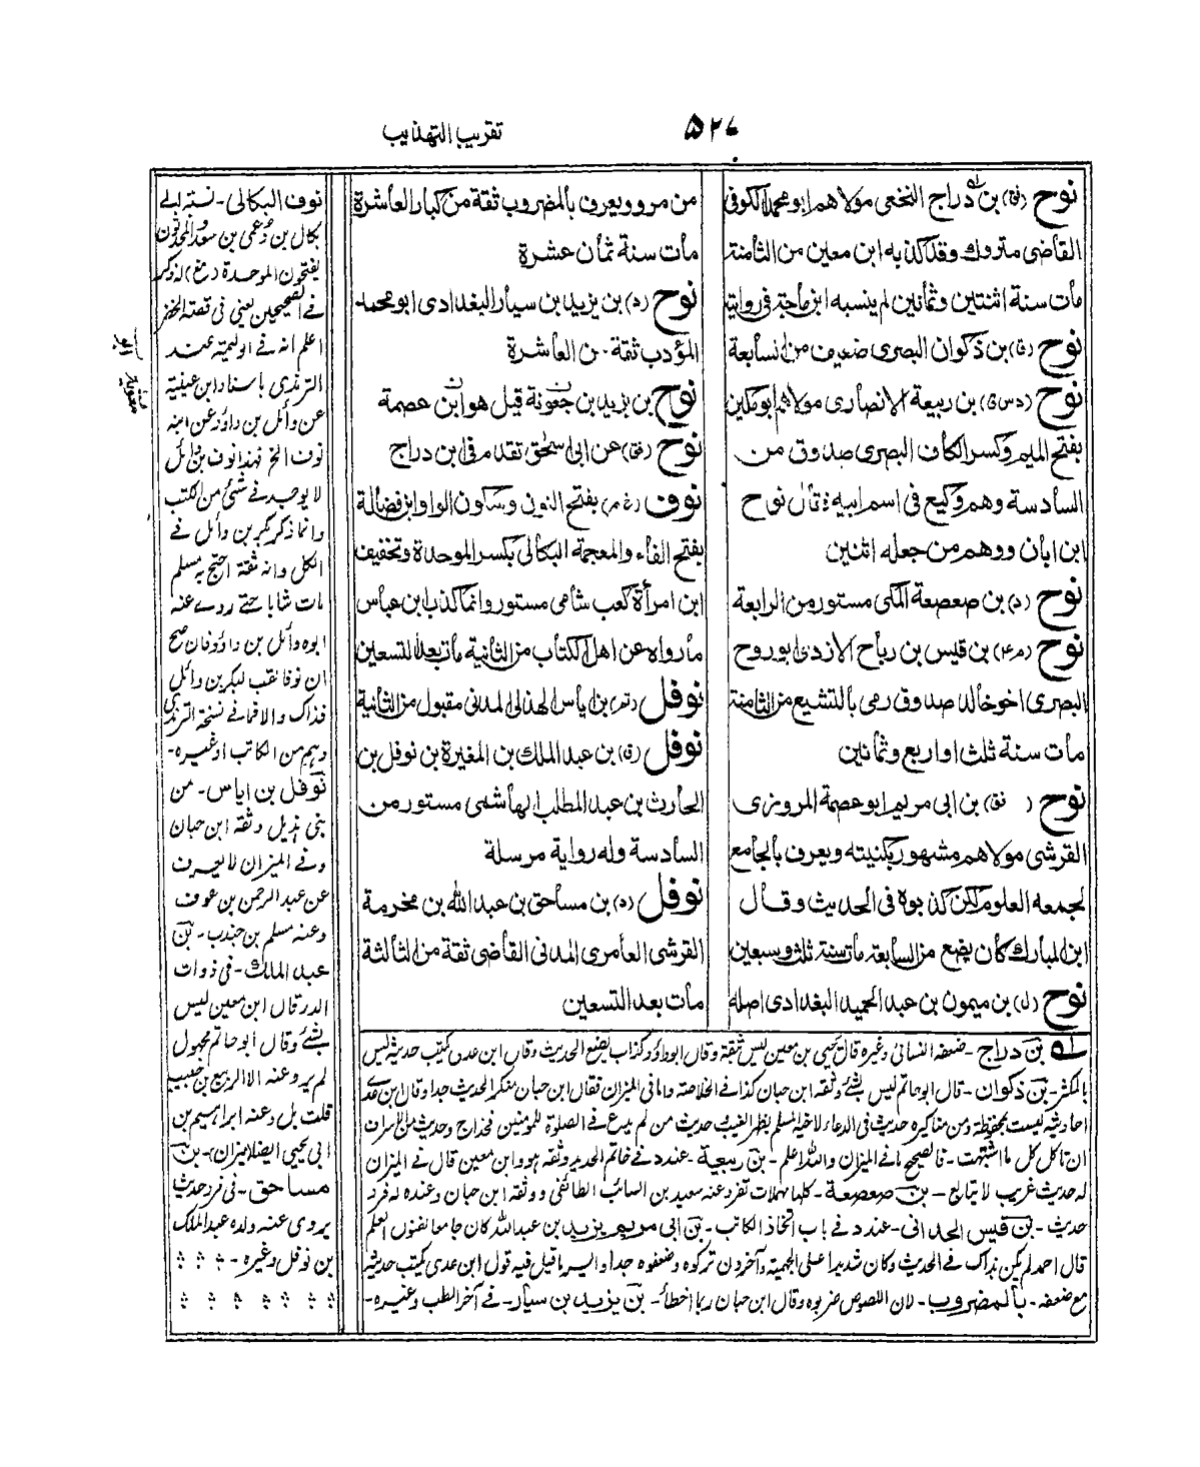 ۵۲۷
تقريب التهذيب
نوح (فق) بن دراج النخعي مولاهم ابو محمد الكوفي
القاضي متروك وقد كذبه ابن معين من الثامنة
مات سنة اثنتين وثمانين لم ينسبه ابن ماجة في روايته
نوح (فا) بن ذكوان البصري ضعيف من السابعة
نوح (دس ق) بن ربيعة الانصاري مولاهم ابو مكين
بفتح الميم وكسر الكاف البصري صدوق من
السادسة وهم وكيع في اسم ابيه فقال نوح
ابن ابان ووهم من جعله اثنين
نوح (د) بن صعصعة المكي مستور من الرابعة
نوح (م ۴) بن قيس بن رباح الازدي ابو روح
البصري اخو خالد صدوق رمي بالتشيع من الثامنة
مات سنة ثلث او اربع وثمانين
نوح ( فق) بن ابي مريم ابو عصمة المروزي
القرشي مولاهم مشهور بكنيته ويعرف بالجامع
لجمعه العلوم لكن كذبوه في الحديث وقال
ابن المبارك كان يضع من السابعة مات سنة ثلث وسبعين
نوح (ل) بن ميمون بن عبد الحميد البغدادي اصله
من مرو ويعرف بالمضروب ثقة من كبار العاشرة
مات سنة ثمان عشرة
نوح (د) بن يزيد بن سيار البغدادي ابو محمد
المؤدب ثقة من العاشرة
نوح بن يزيد بن جعونة قيل هو ابن عصمة
نوح (فق) عن ابي اسحٰق تقدم في ابن دراج
نوف (خ م) بفتح النون وسكون الواو ابن فضالة
بفتح الفاء والمعجمة البكالي بكسر الموحدة وتخفيف
ابن امرأة كعب شامي مستور وانما كذب ابن عباس
ما رواه عن اهل الكتاب من الثانية مات بعد التسعين
نوفل (تم) بن اياس الهذلي المدني مقبول من الثانية
نوفل (ق) بن عبد الملك بن المغيرة بن نوفل بن
الحارث بن عبد المطلب الهاشمي مستور من
السادسة وله رواية مرسلة
نوفل (د) بن مساحق بن عبد الله بن مخرمة
القرشي العامري المدني القاضي ثقة من الثالثة
مات بعد التسعين
لـه بن دراج - ضعفه النسائي وغيره قال يحيى بن معين ليس بثقة وقال ابو داؤد كذاب يضع الحديث وقال ابن عدي يكتب حديثه ليس
بالمكثر - بن ذكوان - قال ابو حاتم ليس بشئ وثقه ابن حبان كذا في الخلاصة واما في الميزان فقال ابن حبان منكر الحديث جدا وقال ابن عدي
احاديثه ليست بمحفوظة ومن مناكيره حديث في الدعاء لاخيه المسلم بظهر الغيب حديث من لم يدع في الصلوة للمؤمنين فخداج وحديث من السرف
ان تاكل كل ما اشتهيت - فالصحيح ما في الميزان والله اعلم - بن ربيعة - عند د في خاتم الحديد وثقه هو وابن معين قال في الميزان
له حديث غريب لا يتابع - بن صعصعة - تفرد عنه سعيد بن السائب الطائفي ووثقه ابن حبان وعنده له فرد
حديث - بن قيس الحداني - عند د في باب اتخاذ الكاتب - بن ابي مريم يزيد بن عبد الله كان جامعا لفنون العلم
قال احمد لم يكن بذاك في الحديث وكان شديدا على الجهمية وآخرون تركوه وضعفوه جدا وايسر ما قيل فيه قول ابن عدي يكتب حديثه
مع ضعفه - بالمضروب - لان اللصوص ضربوه وقال ابن حبان ربما اخطأ - بن يزيد بن سيار - في آخر الطب وغيره -
نوف البكالي - نسبته الى
بكال بن دعمي بن سعد والمحدثون
يفتحون الموحدة (مغ) له ذكر
في الصحيحين يعني في قصة الخضر
اعلم انه في الوليمة عند
الترمذي باسناد ابن عيينة
عن وائل بن داؤد عن ابنه
نوف الخ فهذا نوف بن وائل
لا يوجد في شئ من الكتب
وانما ذكر بكر بن وائل في
الكل وانه ثقة احتج به مسلم
مات شابا حتى روى عنه
ابوه وائل بن داؤد فان صح
ان نوفا لقب لبكر بن وائل
فذاك والا فما في نسخة الترمذي
وهم من الكاتب او غيره -
نوفل بن اياس - من
بني هذيل وثقه ابن حبان
وفي الميزان لا يعرف
عن عبد الرحمن بن عوف
وعنه مسلم بن جندب - بن
عبد الملك - في ذوات
الدر قال ابن معين ليس
بشئ وقال ابو حاتم مجهول
لم يرو عنه الا الربيع بن حبيب
قلت بل وعنه ابراهيم بن
ابي يحيى ايضا (ميزان) - بن
مساحق - في فرد حديث
يروي عنه ولده عبد الملك
بن نوفل وغيره -